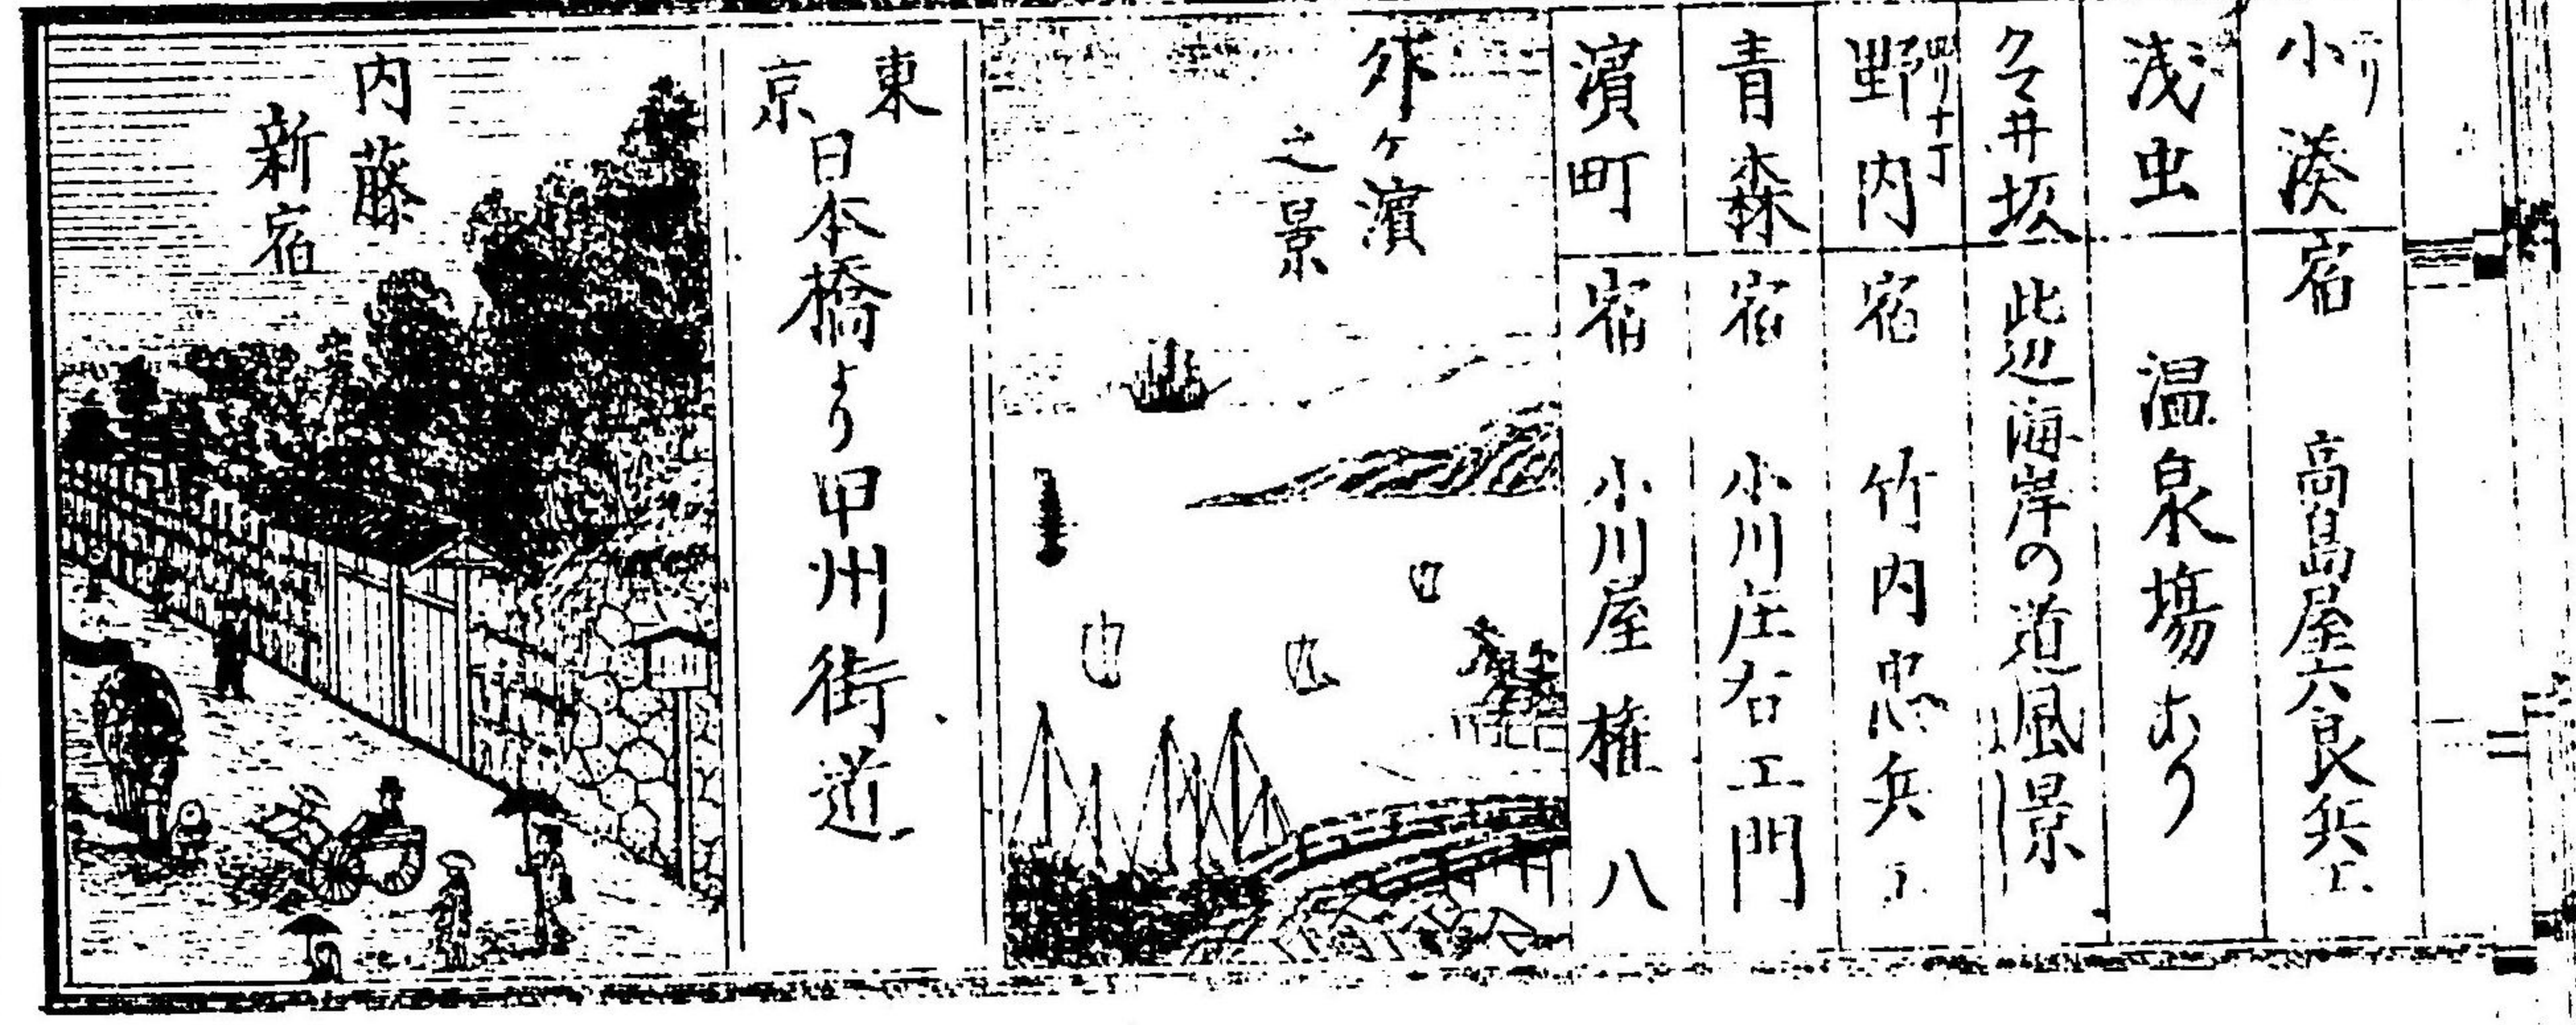 小湊 宿 高島屋六良兵エ
浅虫 温泉塲あり
クマ井坂 此辺海岸の道風景
四リ十丁
野内 宿 竹内忠兵エ
青森 宿 小川庄右エ門
濵町 宿 小川屋権八
外ヶ濵
之景
東京
日本橋より甲州街道
内藤
新宿